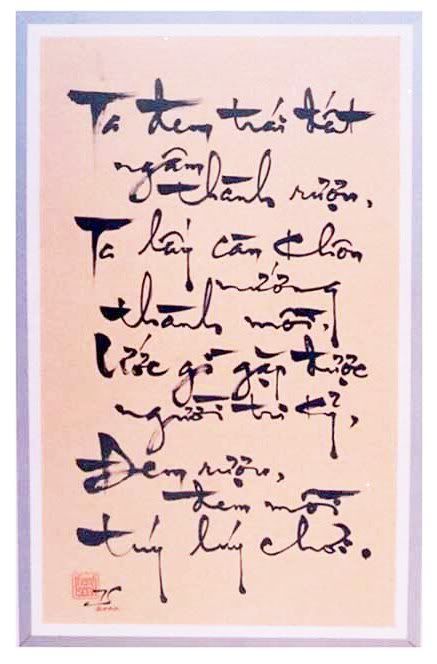 Ta đem trái đất
ngâm
thành rượu,
Ta lấy càn khôn
nướng
thành mồi,
Ước gì gặp được
người tri kỷ,
Đem rượu,
đem mồi
túy lúy chơi.
2000